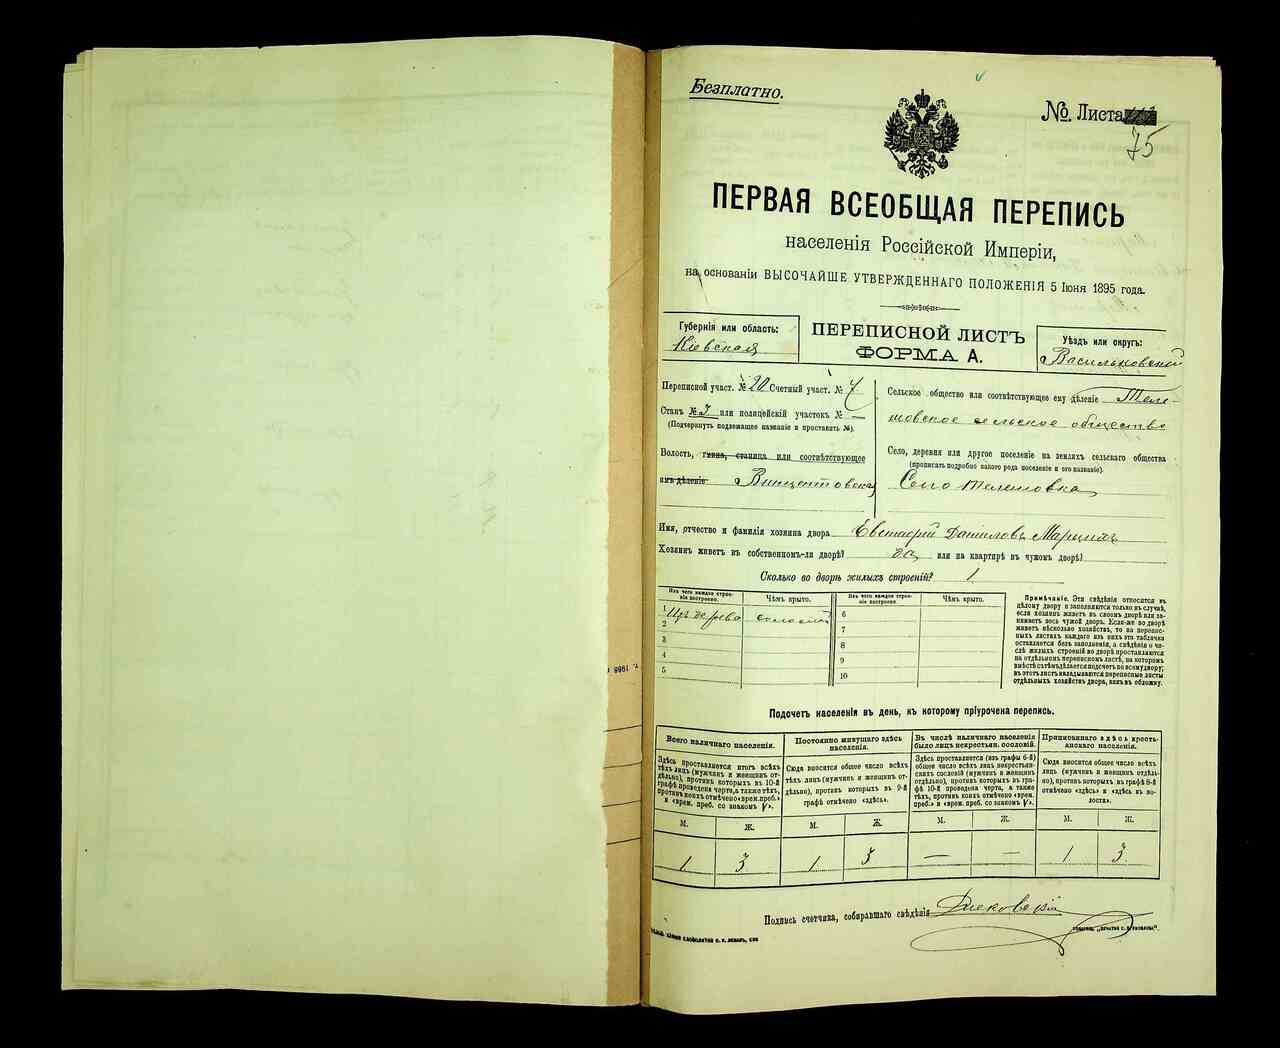 Безплатно.
№. Листа
75
ПЕРВАЯ ВСЕОБЩАЯ ПЕРЕПИСЬ
населенія Россійской Имперіи,
на основаніи ВЫСОЧАЙШЕ УТВЕРЖДЕННАГО ПОЛОЖЕНІЯ 5 Іюня 1895 года.
Губернія или область:
Кіевская
ПЕРЕПИСНОЙ ЛИСТЪ
ФОРМА А.
Уѣздъ или округъ:
Васильковскій
Переписной участ. № 20 Счетный участ. № 7
Станъ № 3 или полицейскій участокъ № —
(Подчеркнуть подлежащее названіе и проставить №).
Волость, гмина, станица или соотвѣтствующее
имъ дѣленіе Винцентовская
Сельское общество или соотвѣтствующее ему дѣленіе Теле-
шовское сельское общество
Село, деревня или другое поселеніе на земляхъ сельскаго общества
(прописать подробно какого рода поселеніе и его названіе).
Село Телешовка
Имя, отчество и фамилія хозяина двора Евстафій Даніиловъ
Хозяинъ живетъ въ собственномъ-ли дворѣ? да или на квартирѣ въ чужомъ дворѣ?
Сколько во дворѣ жилыхъ строеній? 1
Изъ чего каждое строе-
ніе построено.
Чѣмъ крыто.
Изъ чего каждое строе-
ніе построено.
Чѣмъ крыто.
1 Изъ дерева соломой
2
3
4
5
6
7
8
9
10
Примѣчаніе. Эти свѣдѣнія относятся къ
цѣлому двору и заполняются только въ случаѣ,
если хозяинъ живетъ въ своемъ дворѣ или за-
нимаетъ весь чужой дворъ. Если-же во дворѣ
живетъ нѣсколько хозяйствъ, то на перепис-
ныхъ листахъ каждаго изъ нихъ эта табличка
оставляется безъ заполненія, а свѣдѣнія о чи-
слѣ жилыхъ строеній во дворѣ проставляются
на отдѣльномъ переписномъ листѣ, на которомъ
вмѣстѣ съ тѣмъ дѣлается подсчетъ по всему двору;
въ этотъ листъ вкладываются переписные листы
отдѣльныхъ хозяйствъ двора, какъ въ обложку.
Подсчетъ населенія въ день, къ которому пріурочена перепись.
Всего наличнаго населенія.
Здѣсь проставляется итогъ всѣхъ
тѣхъ лицъ (мужчинъ и женщинъ от-
дѣльно), противъ которыхъ въ 10-й
графѣ проведена черта, а также тѣхъ,
противъ коихъ отмѣчено «врем. преб.»
и «врем. преб. со знакомъ V».
Постоянно живущаго здѣсь
населенія.
Сюда вносится общее число всѣхъ
тѣхъ лицъ (мужчинъ и женщинъ от-
дѣльно), противъ которыхъ въ 9-й
графѣ отмѣчено «здѣсь».
Въ числѣ наличнаго населенія
было лицъ некрестьян. сословій.
Здѣсь проставляется (изъ графы 6-й)
общее число всѣхъ лицъ некрестьян-
скихъ сословій (мужчинъ и женщинъ
отдѣльно), противъ которыхъ въ гра-
фѣ 10-й проведена черта, а также
тѣхъ, противъ коихъ отмѣчено «врем.
преб.» и «врем. преб. со знакомъ V».
Приписаннаго здѣсь кресть-
янскаго населенія.
Сюда вносится общее число всѣхъ
лицъ (мужчинъ и женщинъ отдѣль-
но), противъ которыхъ въ графѣ 8-й
отмѣчено «здѣсь» и «здѣсь въ во-
лости».
М. Ж. М. Ж. М. Ж. М. Ж.
1 3 1 3 — — 1 3
Подпись счетчика, собиравшаго свѣдѣнія